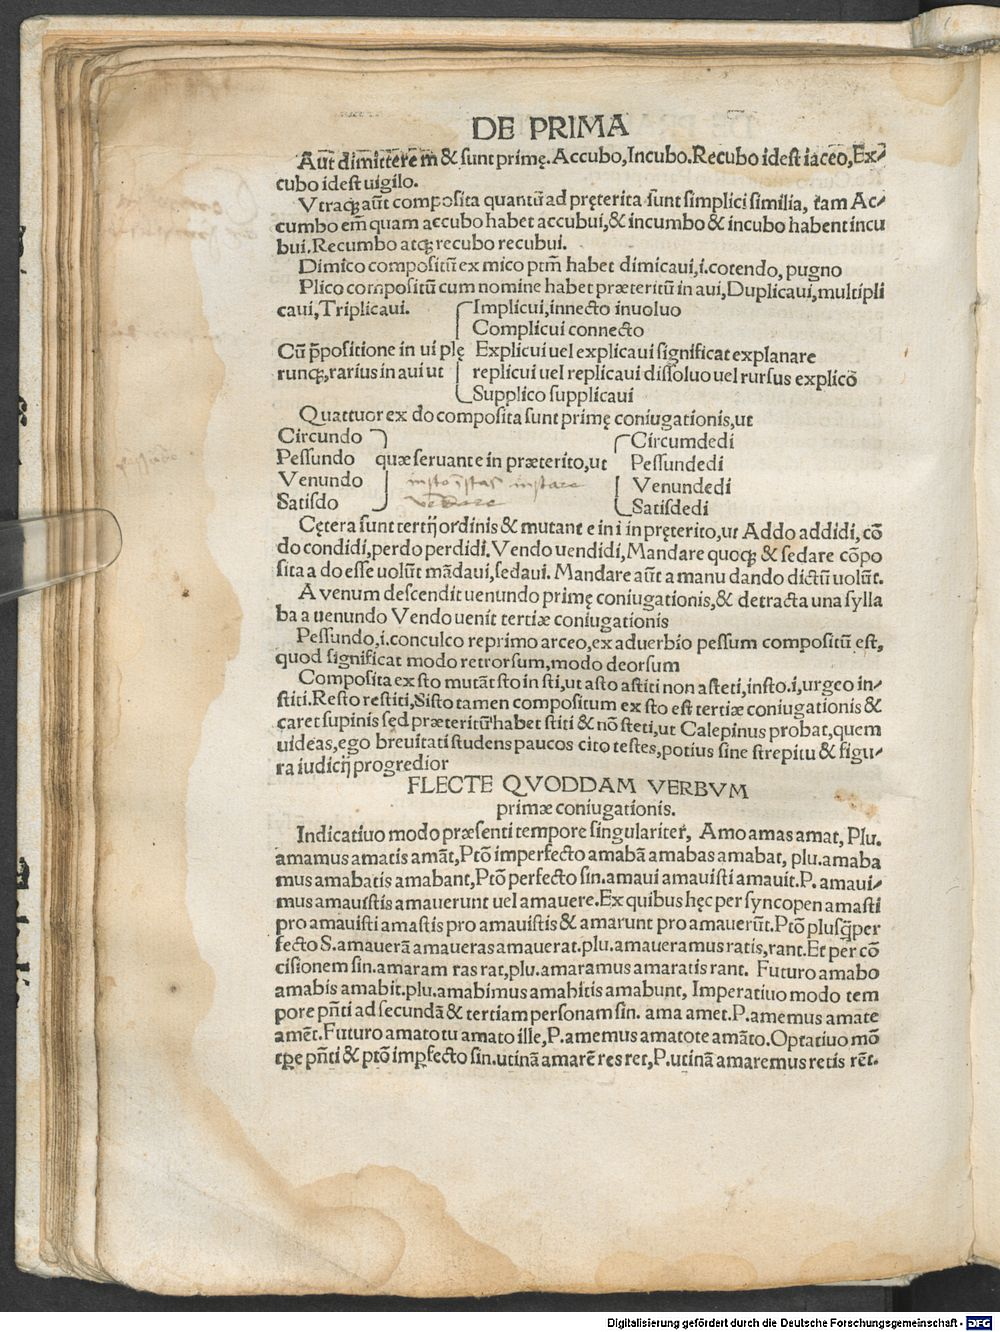 DE PRIMA
Aūt dimittere m̄ & sunt primę. Accubo, Incubo. Recubo idest iaceo, Ex⸗
cubo idest uigilo.
Vtraqꝫ aūt composita quantū ad pręterita sunt simplici similia, tam Ac⸗
cumbo em̄ quam accubo habet accubui, & incumbo & incubo habent incu
bui. Recumbo atqꝫ recubo recubui.
Dimico compositū ex mico ptm̄ habet dimicaui, i. cōtendo, pugno
Plico compositū cum nomine habet præteritū in aui, Duplicaui, multipli
caui, Triplicaui. Implicui, innecto inuoluo
Complicui connecto
Cū p̄positione in ui plę Explicui uel explicaui significat explanare
runqꝫ, rarius in aui ut replicui uel replicaui dissoluo uel rursus explicō
Supplico supplicaui
Quattuor ex do composita sunt primę coniugationis, ut
Circundo Circumdedi
Pessundo quæ seruant e in præterito, ut Pessundedi
Venundo insto īstas instare Venundedi
Satisdo Satisdedi
Cętera sunt tertij ordinis & mutant e in i in pręterito, ut Addo addidi, cō
do condidi, perdo perdidi. Vendo uendidi, Mandare quoqꝫ & sedare cōpo
sita a do esse uolūt mādaui, sedaui. Mandare aūt a manu dando dictū uolūt.
A venum descendit uenundo primę coniugationis, & detracta una sylla
ba a uenundo Vendo uenit tertiæ coniugationis
Pessundo, i. conculco reprimo arceo, ex aduerbio pessum compositū est,
quod significat modo retrorsum, modo deorsum
Composita ex sto mutāt sto in sti, ut asto astiti non asteti, insto. i, urgeo in⸗
stiti. Resto restiti, Sisto tamen compositum ex sto est tertiæ coniugationis &
caret supinis sed præteritū habet stiti & nō steti, ut Calepinus probat, quem
uideas, ego breuitati studens paucos cito testes, potius sine strepitu & figu⸗
ra iudicij progredior
FLECTE QVODDAM VERBVM
primæ coniugationis.
Indicatiuo modo præsenti tempore singulariter, Amo amas amat, Plu.
amamus amatis amāt, Ptō imperfecto amabā amabas amabat, plu. amaba
mus amabatis amabant, Ptō perfecto sin. amaui amauisti amauit. P. amaui⸗
mus amauistis amauerunt uel amauere. Ex quibus hęc per syncopen amasti
pro amauisti amastis pro amauistis & amarunt pro amauerūt. Ptō plusq̄per
fecto S. amauerā amaueras amauerat. plu. amaueramus ratis, rant. Et per cō
cisionem sin. amaram ras rat, plu. amaramus amaratis rant. Futuro amabo
amabis amabit. plu. amabimus amabitis amabunt, Imperatiuo modo tem
pore pn̄ti ad secundā & tertiam personam sin. ama amet. P. amemus amate
amēt. Futuro amato tu amato ille, P. amemus amatote amāto. Optatiuo mō
tꝑe pn̄ti & ptō imꝑfecto sin. utinā amarē res ret, P. utinā amaremus retis rēt.
Digitalisierung gefördert durch die Deutsche Forschungsgemeinschaft - DFG